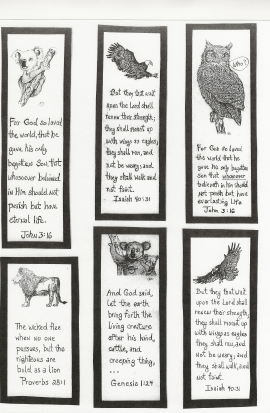 For God so loved
the world, that he
gave his only
begotten Son, that
whosoever believed
in Him should not
perish but have
eternal life.
John 3:16
But they that wait
upon the Lord shall
renew their strength;
they shall mount up
with wings as eagles;
they shall run, and
not be weary; and
they shall walk and
not faint.
Isaiah 40:31
Who?
For God so loved
the world that he
gave his only begotten
son that whosoever
believeth in him should
not perish but have
everlasting life
John 3:16
The wicked flee
when no one
pursues, but the
righteous are
bold as a lion
Proverbs 28:1
And God said,
Let the earth
bring forth the
living creature
after his kind,
cattle, and
creeping thing,
...
Genesis 1:24
But they that wait
upon the Lord shall
renew their strength,
they shall mount up
with wings as eagles
they shall run, and
not be weary; and
they shall walk, and
not faint.
Isaiah 40:31